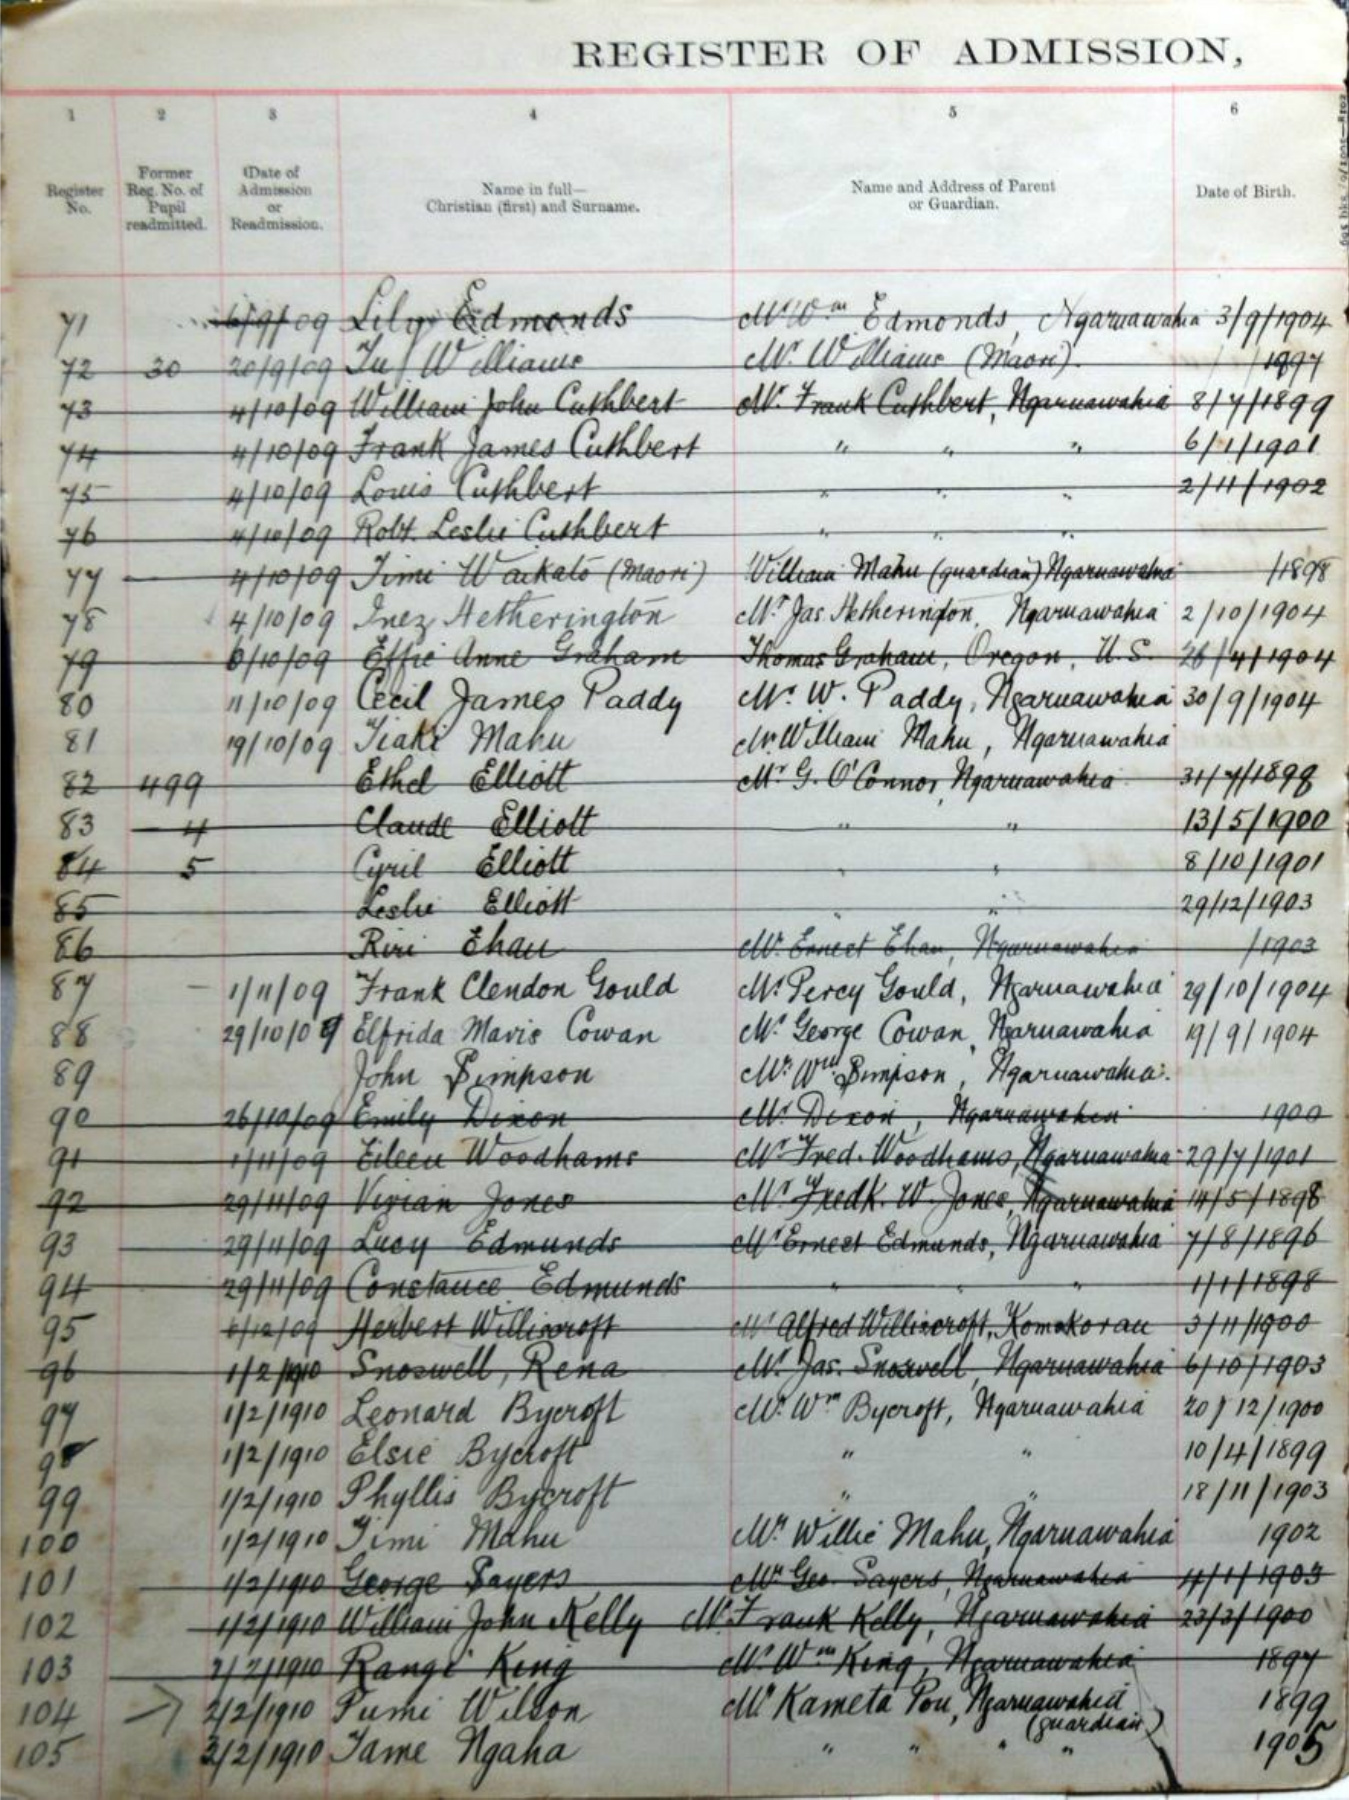 REGISTER OF ADMISSION,
1 2 3 4 5 6
Register No. Former Reg. No. of Pupil readmitted. Date of Admission or Readmission. Name in full— Christian (first) and Surname. Name and Address of Parent or Guardian. Date of Birth.
71 6/9/09 Lily Edmonds Mr Wm Edmonds, Ngaruawahia 3/9/1904
72 30 20/9/09 Tu Williams Mr. Williams (Maori). 1897
73 4/10/09 William John Cuthbert Mr. Frank Cuthbert, Ngaruawahia 8/7/1899
74 4/10/09 Frank James Cuthbert " " " 6/1/1901
75 4/10/09 Louis Cuthbert " " " 2/11/1902
76 4/10/09 Robt. Leslie Cuthbert " " "
77 4/10/09 Timi Waikato (Maori) William Mahu (guardian) Ngaruawahia /1898
78 4/10/09 Inez Hetherington Mr. Jas. Hetherington, Ngaruawahia 2/10/1904
79 6/10/09 Effie Anne Graham Thomas Graham, Oregon, U.S. 26/4/1904
80 11/10/09 Cecil James Paddy Mr. W. Paddy, Ngaruawahia 30/9/1904
81 19/10/09 Tiaki Mahu Mr. William Mahu, Ngaruawahia
82 499 Ethel Elliott Mr G. O'Connor, Ngaruawahia 31/7/1898
83 4 Claude Elliott " " 13/5/1900
84 5 Cyril Elliott " " 8/10/1901
85 Leslie Elliott " " 29/12/1903
86 Riri Ehau Mr. Ernest Ehau, Ngaruawahia /1903
87 1/11/09 Frank Clendon Gould Mr Percy Gould, Ngaruawahia 29/10/1904
88 29/10/09 Elfrida Mavis Cowan Mr. George Cowan, Ngaruawahia 19/9/1904
89 John Simpson Mr. Wm Simpson, Ngaruawahia.
90 26/10/09 Emily Dixon Mr. Dixon, Ngaruawahia 1900
91 1/11/09 Eileen Woodhams Mr Fred. Woodhams, Ngaruawahia 29/7/1901
92 29/11/09 Vivian Jones Mr Fredk. W. Jones, Ngaruawahia 14/5/1898
93 29/11/09 Lucy Edmunds Mr Ernest Edmunds, Ngaruawahia 7/8/1896
94 29/11/09 Constance Edmunds " " 1/1/1898
95 6/12/09 Herbert Williscroft Mr Alfred Williscroft, Komakorau 3/11/1900
96 1/2/1910 Snoswell, Rena Mr. Jas. Snoswell, Ngaruawahia 6/10/1903
97 1/2/1910 Leonard Bycroft Mr. Wm Bycroft, Ngaruawahia 20/12/1900
98 1/2/1910 Elsie Bycroft " " 10/4/1899
99 1/2/1910 Phyllis Bycroft " " 18/11/1903
100 1/2/1910 Timi Mahu Mr. Willie Mahu, Ngaruawahia 1902
101 1/2/1910 George Sayers Mr Geo. Sayers, Ngaruawahia 4/1/1903
102 1/2/1910 William John Kelly Mr. Frank Kelly, Ngaruawahia 23/3/1900
103 2/2/1910 Rangi King Mr. Wm King, Ngaruawahia 1897
104 2/2/1910 Pumi Wilson Mr Kameta Pou, Ngaruawahia (guardian) 1899
105 3/2/1910 Tame Ngaha " " " " 1905